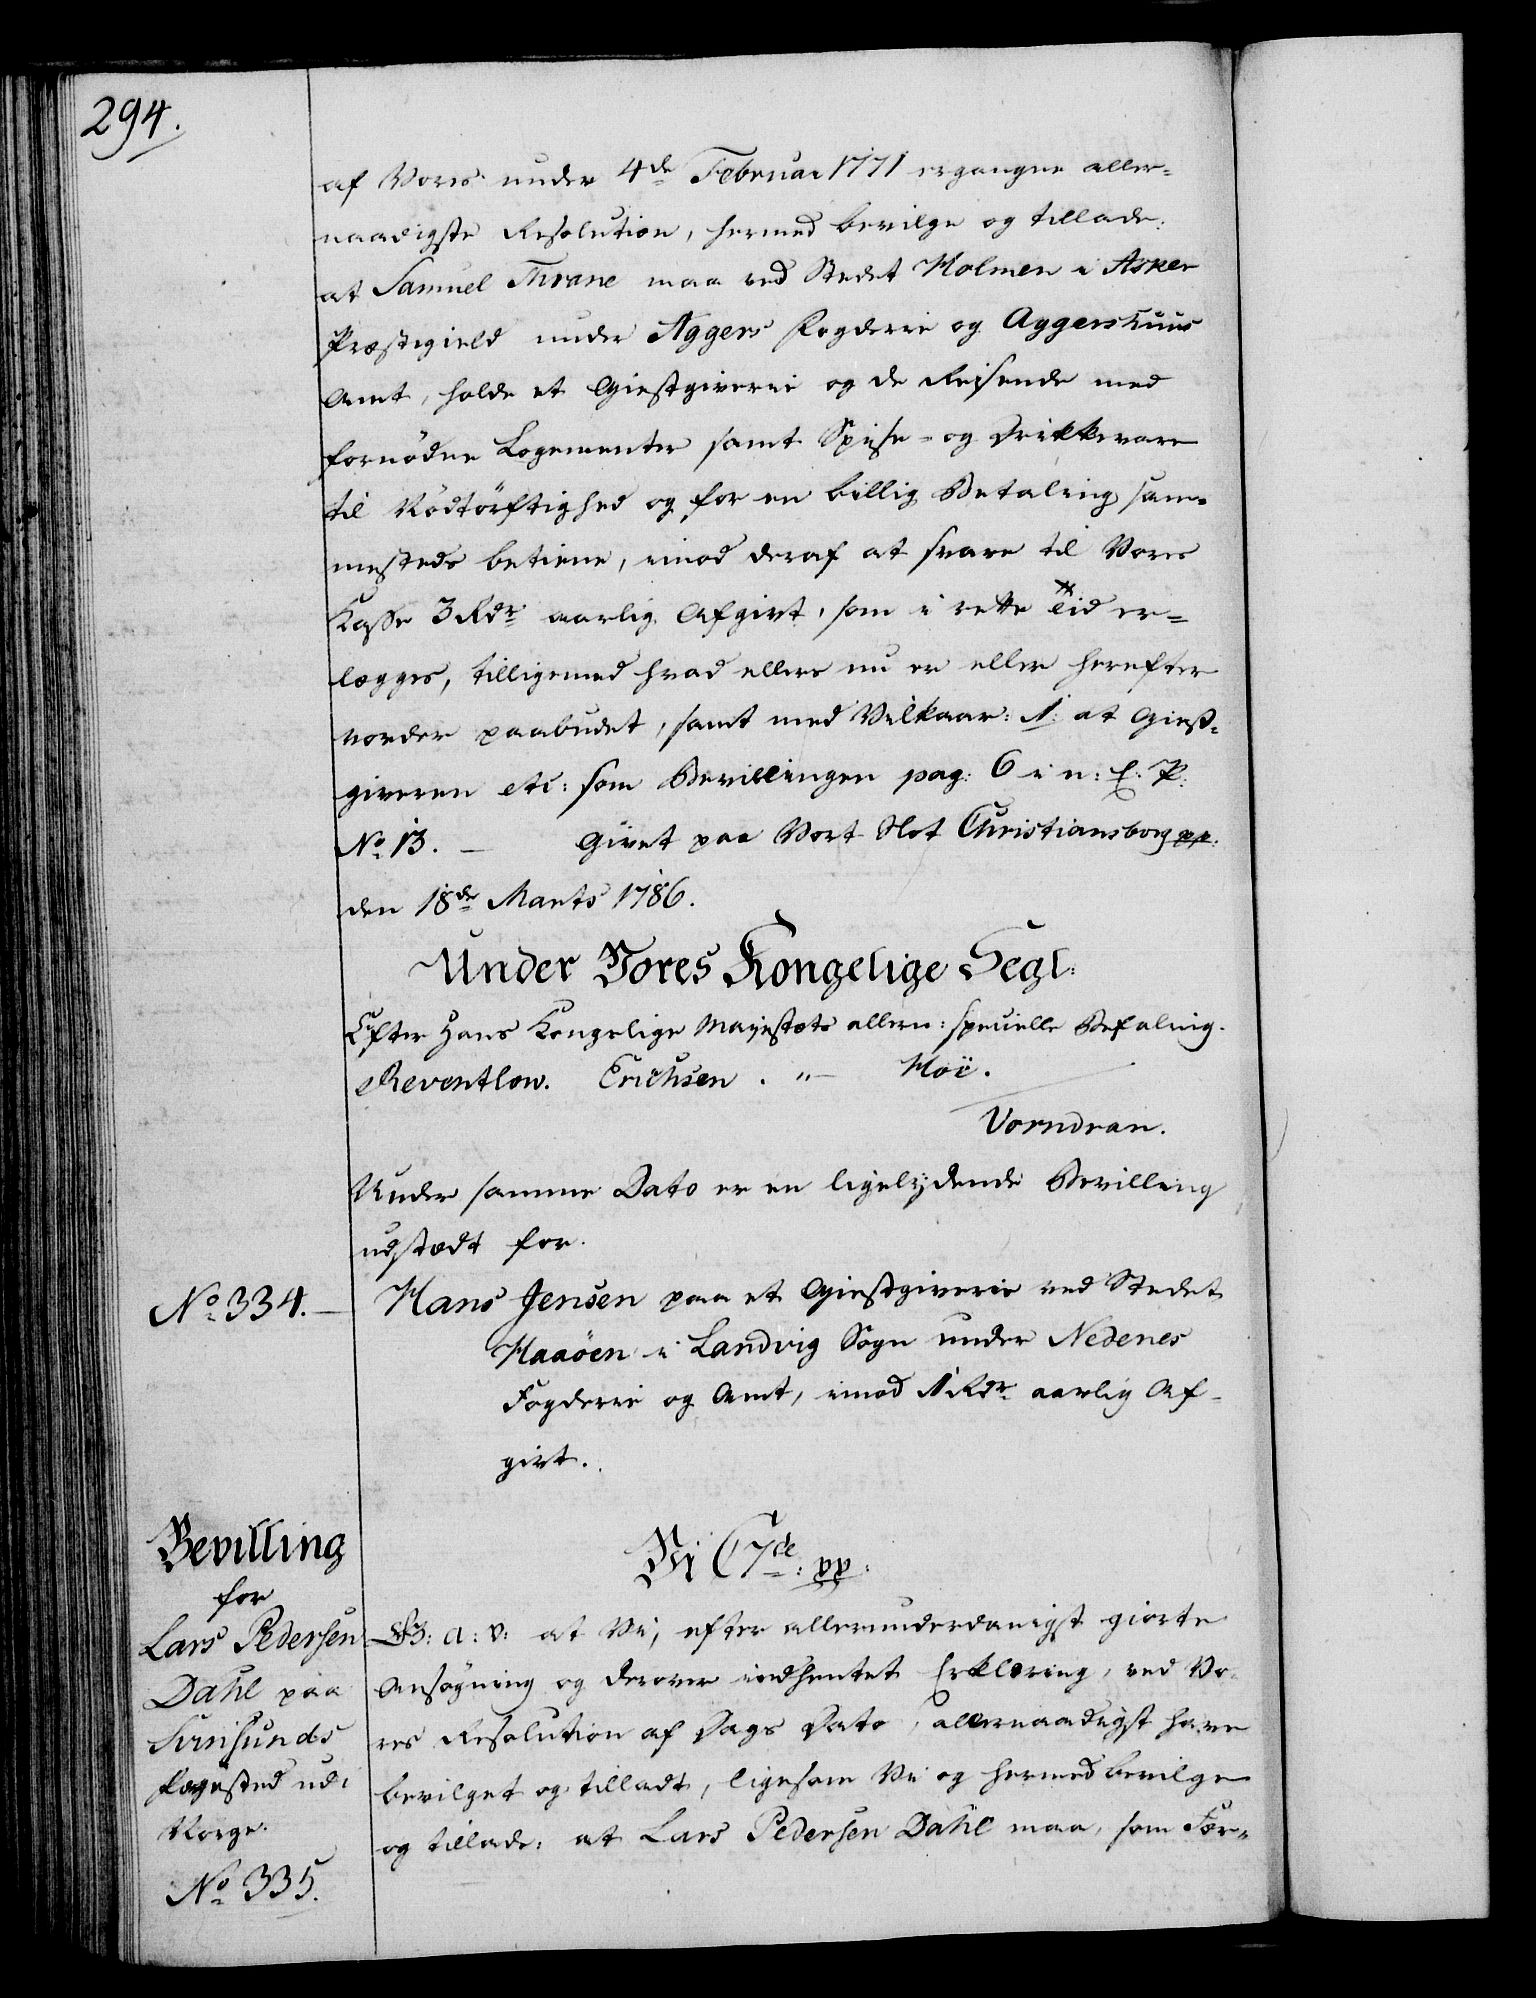 294.
af Vores under 4de Februar 1771 ergangne aller-
naadigste Resolution, hermed bevilge og tillade:
at Samuel Thrane maa ved Stedet Holmen i Asker
Præstegield under Aggers Fogderie og Aggershuus
Amt, holde et Giestgiverie og de Reisende med
fornødne Logementer samt Spise- og Drikkevare
til Nødtørftighed og for en billig Betaling sam-
mesteds betiene, imod deraf at svare til Vores
Kasse 3 Rdr aarlig Afgivt, som i rette Tid er-
lægges, tilligemed hvad ellers nu er eller herefter
vorder paabudet, samt med Vilkaar: 1: at Giest-
giveren etc: som Bevillingen pag: 6 i n: E: P:
No 13. — Givet paa Vort Slot Christiansborg pp:
den 18de Marts 1786.
Under Vores Kongelige Segl:
Efter Hans Kongelige Majestæts allern: specielle Befaling.
Reventlow. Erichsen. „ — Høi.
Vorndran.
Under samme Dato er en ligelydende Bevilling
udstædt for.
No 334. — Hans Jensen paa et Giestgiverie ved Stedet
Haaöen i Landvig Sogn under Nedenes
Fogderie og Amt, imod 1 Rdr aarlig Af-
givt.
Bevilling
for
Lars Pedersen
Dahl paa
Svinsunds
Færgested udi
Norge.
No 335.
Vi C 7de: pp:
G: a: v: at Vi, efter allerunderdanigst giorte
Ansøgning og derover indhentet Erklæring, ved Vo-
res Resolution af Dags Dato, allernaadigst have
bevilget og tilladt, ligesom Vi og hermed bevilge
og tillade: at Lars Pedersen Dahl maa, som Fær-